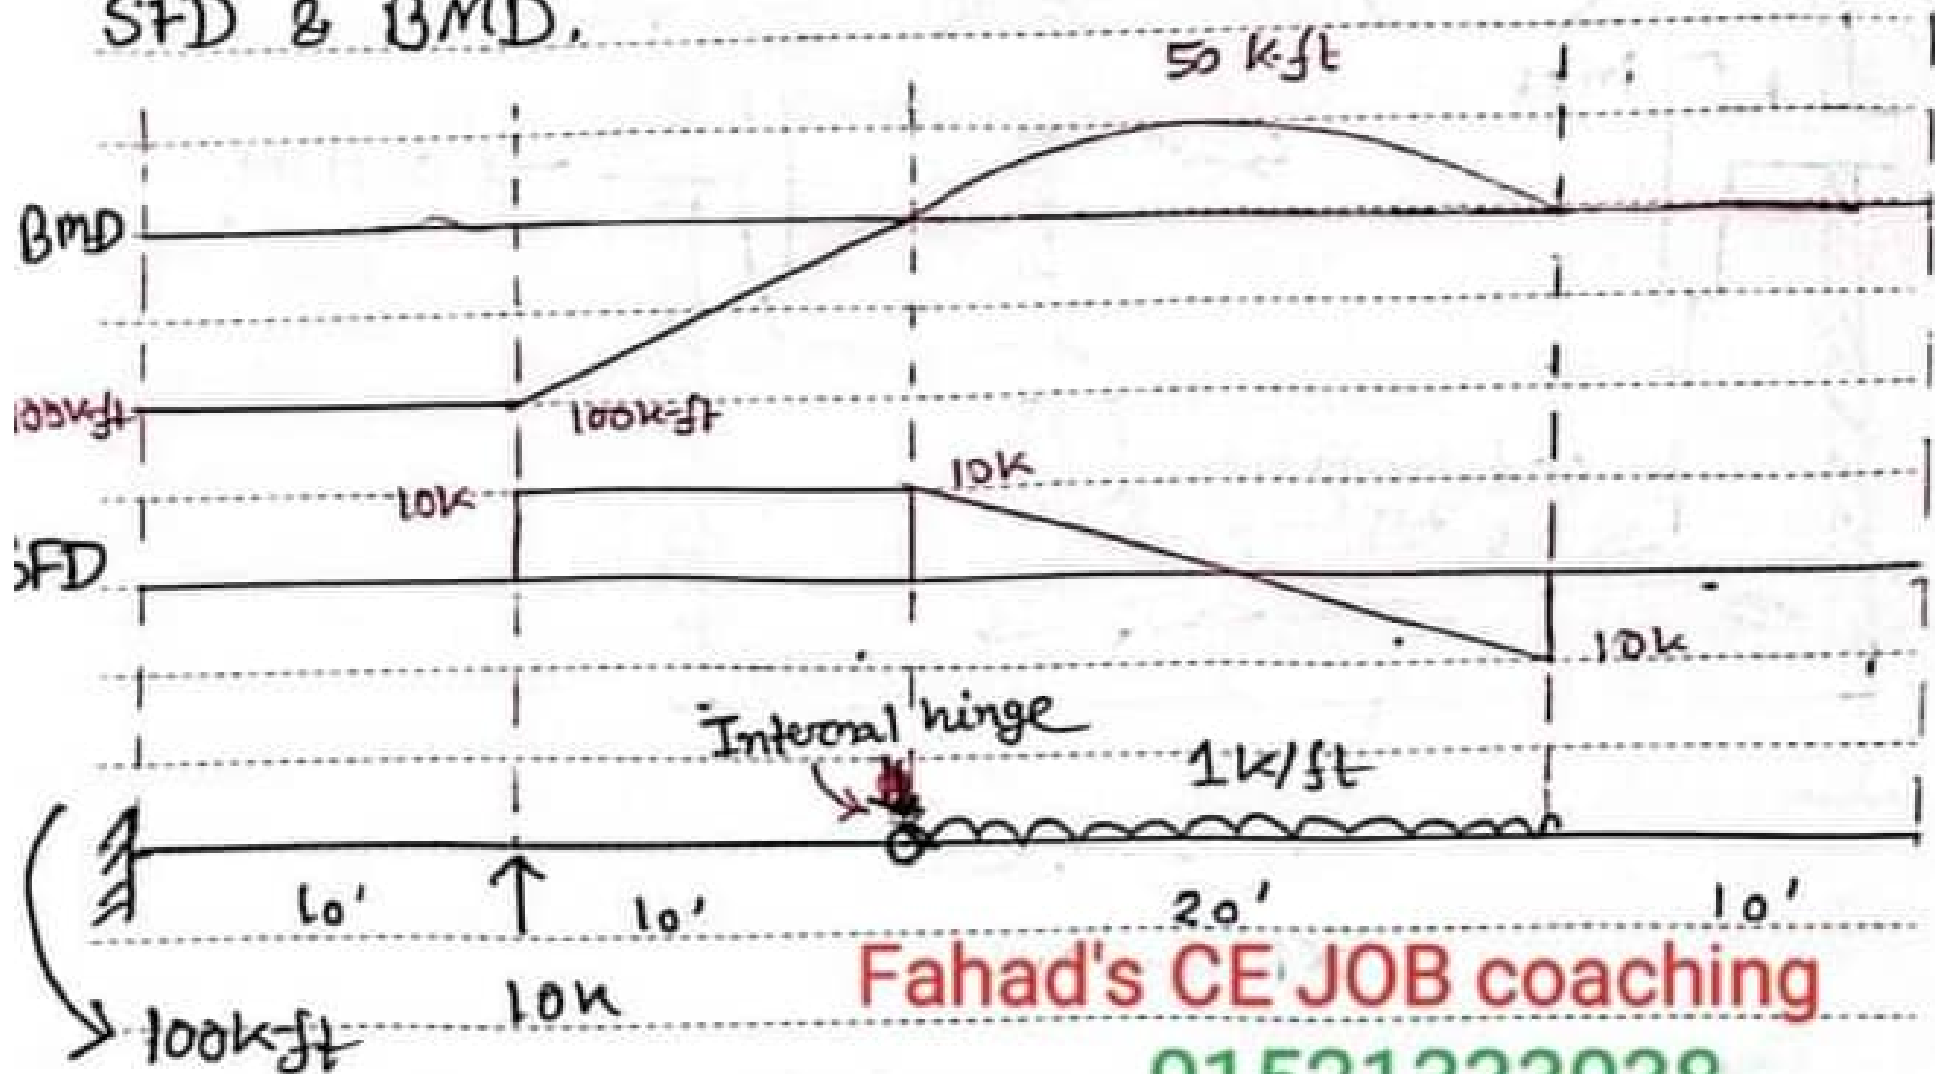 SFD & BMD.
50 k-ft
BMD
100k-ft
100k-ft
10K
10K
SFD
10K
Internal hinge
1K/ft
10'
10'
20'
10'
10K
100k-ft
Fahad's CE JOB coaching